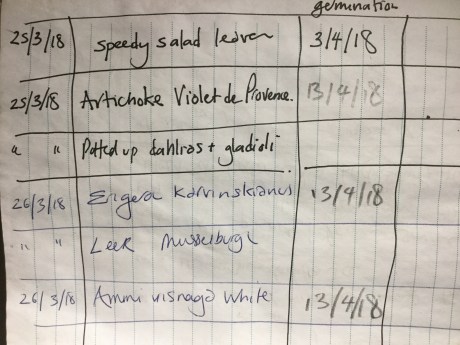 germination
25/3/18 speedy salad leaves 3/4/18
25/3/18 Artichoke Violet de Provence. 13/4/18
" " Potted up dahlias + gladioli
26/3/18 Erigeron Karvinskianus 13/4/18
" " Leek Musselburgh
26/3/18 Ammi visnaga white 13/4/18